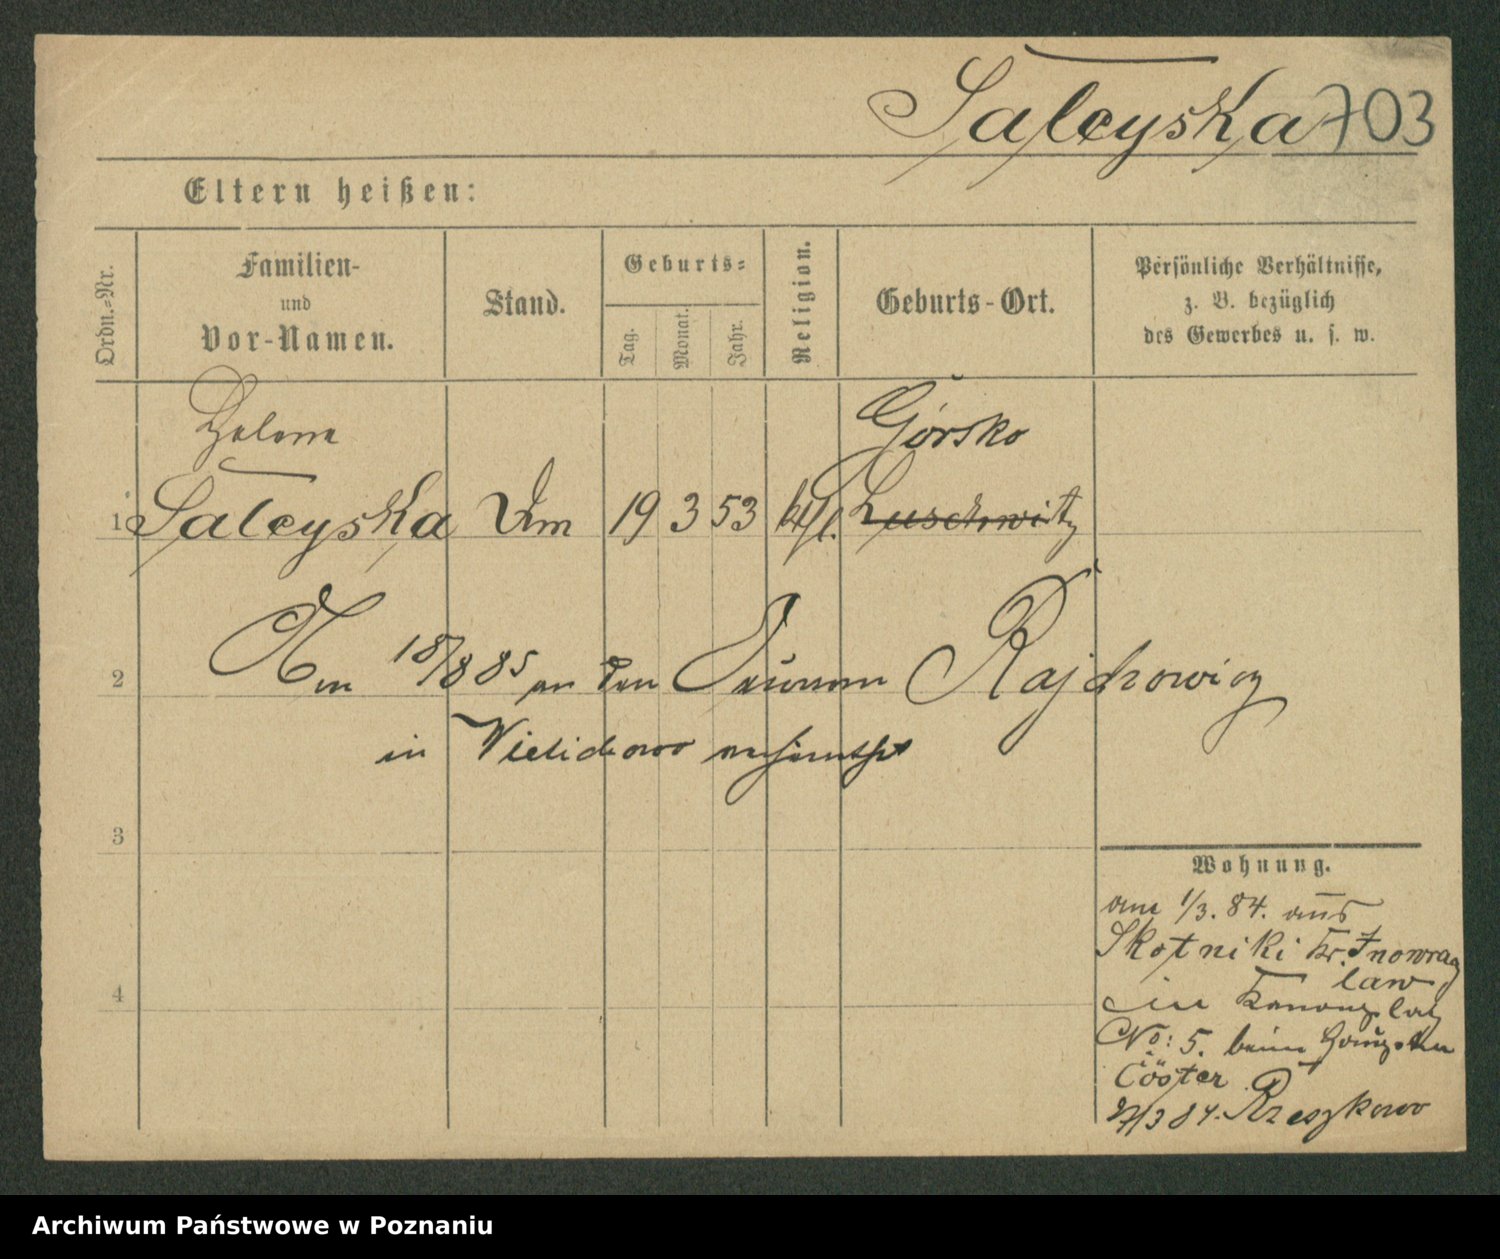 Saleyska 703
Eltern heißen:
Ordn.-Nr.
Familien-
und
Vor-Namen.
Stand.
Geburts-
Tag.
Monat.
Jahr.
Religion.
Geburts-Ort.
Persönliche Verhältnisse,
z. B. bezüglich
des Gewerbes u. s. w.
Helena
Górsko
1 Saleyska 19 3 53 kth. Luschwitz
2 Am 18/8 85 an den Rajchowicz
in Wielichowo verheirathet
3
4
Wohnung.
am 1/3. 84. aus
Skotniki Kr. Inowraz
law
in Kanonzplatz
No: 5. beim
Cöster
27/3 84. Rzeszkowo
Archiwum Państwowe w Poznaniu